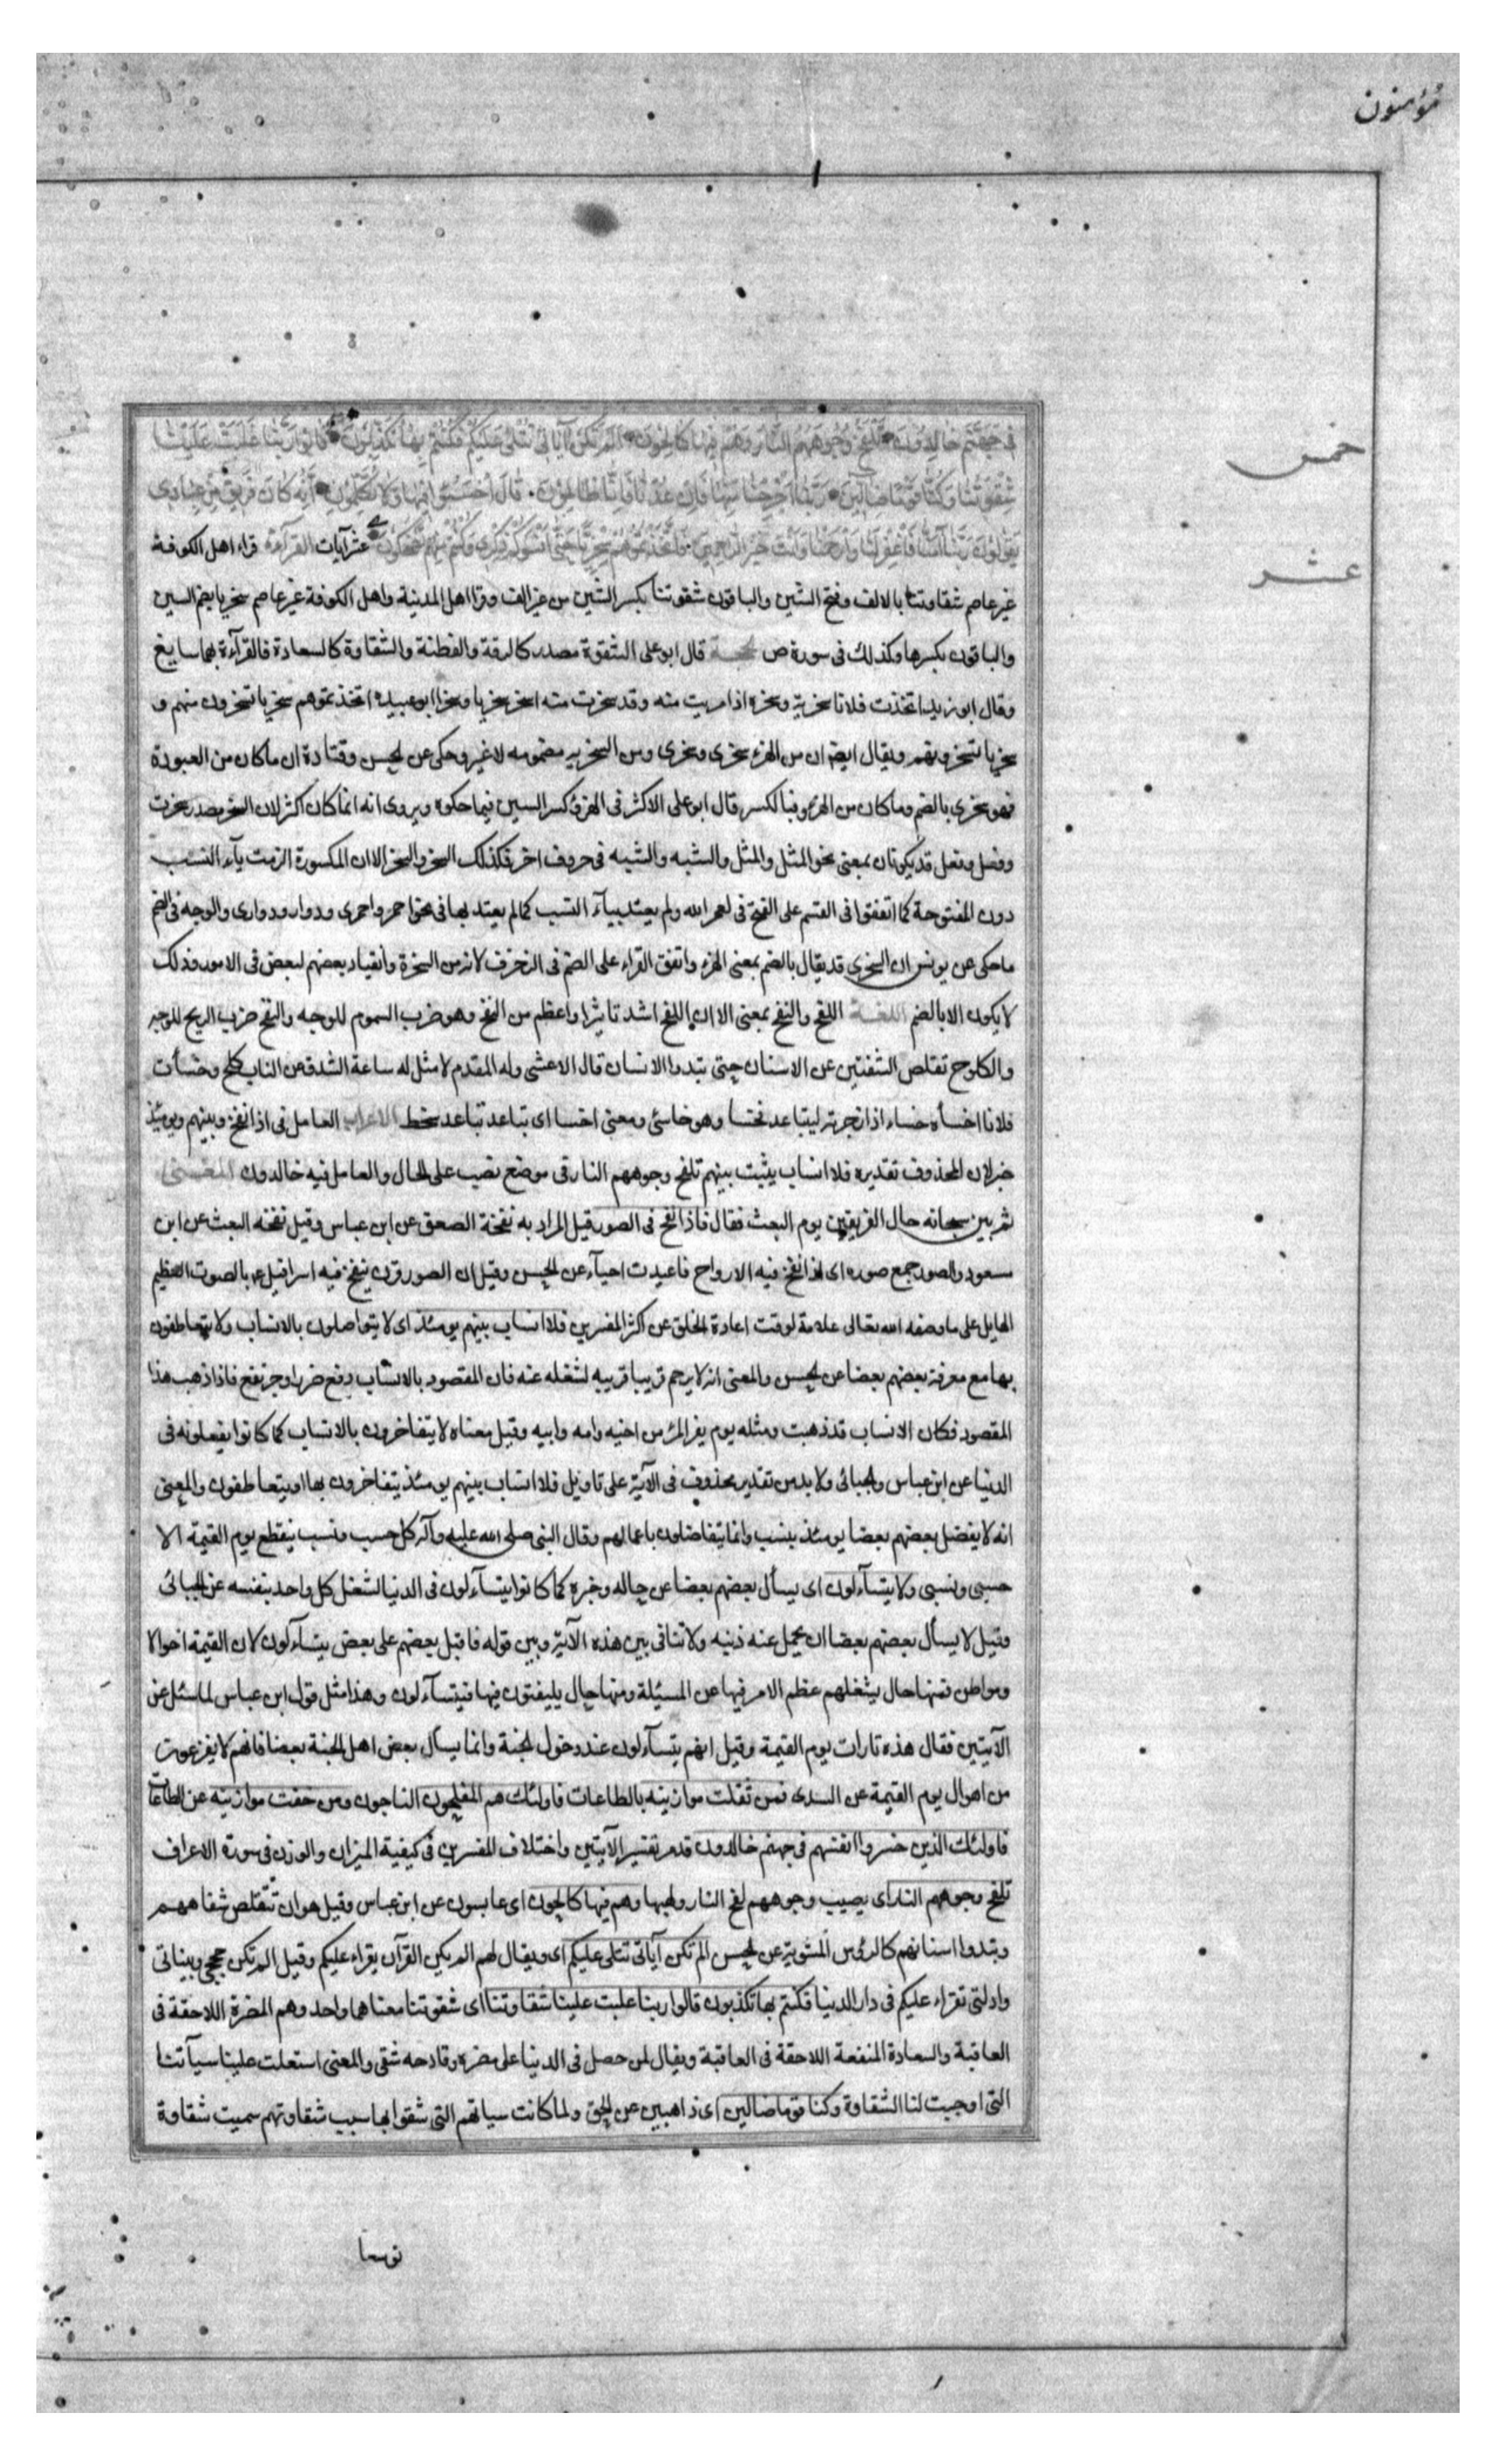 مؤمنون
خمس
عشر
في جهنم خالدون تلفح وجوههم النار وهم فيها كالحون الم تكن آياتي تتلى عليكم فكنتم بها تكذبون قالوا ربنا غلبت علينا
شقوتنا وكنا قوما ضالين ربنا اخرجنا منها فان عدنا فانا ظالمون قال اخسئوا فيها ولا تكلمون انه كان فريق من عبادي
يقولون ربنا آمنا فاغفر لنا وارحمنا وانت خير الراحمين فاتخذتموهم سخريا حتى انسوكم ذكري وكنتم منهم تضحكون عشر آيات القرآءة قراء اهل الكوفة
غير عاصم شقاوتنا بالالف وفتح الشين والباقون شقوتنا بكسر الشين من غير الف وقرا اهل المدينة واهل الكوفة غير عاصم سخريا بضم السين
والباقون بكسرها وكذلك في سورة ص قال ابو على الشقوة مصدر كالرقة والفطنة والشقاوة كالسعادة فالقرآءة بهما سايغ
وقال ابو زيد اتخذت فلانا سخرية وسخره اذا هزيت منه وقد سخرت منه اسخر سخريا وسخرا ابو عبيدة اتخذتموهم سخريا تسخرون منهم و
سخريا تسخرونهم ويقال ايضا ان من الهزء سخرى وسخرى ومن السخريه مضمومه لاغير وحكى عن الحسن وقتادة ان ماكان من العبودة
فهو سخرى بالضم وماكان من الهزو فبالكسر قال ابو على الاكثر فى الهزؤ كسر السين فيما حكوه ويروى انه انما كان اكثر لان السخر مصدر سخرت
وفعل وفعل قد يكونان بمعنى نحو المثل والمثل والشبه والشبه فى حروف اخر فكذلك السخر والسخر الا ان المكسورة الزمت يآء النسب
دون المفتوحة كما اتفقوا فى القسم على الفتح فى لعمر الله ولم يعتد بيآء النسب كما لم يعتد بها فى نحو احمر واحمرى ودوار ودوارى والوجه فى الضم
ماحكى عن يونس ان السخرى قد يقال بالضم بمعنى الهزء واتفق القراء على الضم فى الزخرف لانه من السخرة وانقياد بعضهم لبعض فى الامور فذلك
لايكون الا بالضم اللغة اللفح والنفح بمعنى الا ان اللفح اشد تاثيرا واعظم من النفح وهو ضرب السموم للوجه والنفح ضرب الريح للوجه
والكلوح تقلص الشفتين عن الاسنان حتى تبدوا الاسنان قال الاعشى وله المقدم لامثل له ساعة الشدق عن الناب كلح وخسأت
فلانا اخسأه خساء اذا زجرته ليتباعد فخسا وهو خاسئ ومعنى اخسا اى تباعد تباعد سخط الاعراب العامل فى اذا نفخ وبينهم ويومئذ
خبر لان المحذوف تقديره فلا انساب يثبت بينهم تلفح وجوههم النار فى موضع نصب على الحال والعامل فيه خالدون المعنى
ثم بين سبحانه حال الفريقين يوم البعث فقال فاذا نفخ فى الصور قيل المراد به نفخة الصعق عن ابن عباس وقيل نفخه البعث عن ابن
مسعود والصور جمع صوره اى اذا نفخ فيه الارواح فاعيدت احيآء عن الحسن وقيل ان الصور قرن ينفخ فيه اسرافيل ع بالصوت العظيم
الهايل على ماوصفه الله تعالى علامة لوقت اعادة الخلق عن اكثر المفسرين فلا انساب بينهم يومئذ اى لا يتواصلون بالانساب ولا يتعاطفون
بها مع معرفة بعضهم بعضا عن الحسن والمعنى انه لايرحم قريب قريبه لشغله عنه فان المقصود بالانساب دفع ضر او جر نفع فاذا ذهب هذا
المقصود فكان الانساب قد ذهبت ومثله يوم يفر المرء من اخيه وامه وابيه وقيل معناه لا يتفاخرون بالانساب كما كانوا يفعلونه فى
الدنيا عن ابن عباس والجبائى ولا بد من تقدير محذوف فى الآية على تاويل فلا انساب بينهم يومئذ يتفاخرون بها او يتعاطفون والمعنى
انه لايفضل بعضهم بعضا يومئذ بنسب وانما يتفاضلون باعمالهم وقال النبى صلى الله عليه وآله كل حسب ونسب ينقطع يوم القيمة الا
حسبى ونسبى ولا يتسآءلون اى يسأل بعضهم بعضا عن حاله وخبره كما كانوا يتسآءلون فى الدنيا لشغل كل واحد بنفسه عن الجبائى
وقيل لايسأل بعضهم بعضا ان يحمل عنه ذنبه ولا تنافى بين هذه الآية وبين قوله فاقبل بعضهم على بعض يتسآءلون لان القيمة احوالا
ومواطن فمنها حال يشغلهم عظم الامر فيها عن المسئلة ومنها حال يليفتون فيها فيتسآءلون وهذا مثل قول ابن عباس لما سئل عن
الآيتين فقال هذه تارات يوم القيمة وقيل انهم يتسآءلون عند دخول الجنة وانما يسأل بعض اهل الجنة بعضا فانهم لايفزعون
من اهوال يوم القيمة عن السدى فمن ثقلت موازينه بالطاعات فاولئك هم المفلحون الناجون ومن خفت موازينه عن الطاعات
فاولئك الذين خسروا انفسهم فى جهنم خالدون قد مر تفسير الآيتين واختلاف المفسرين فى كيفية الميزان والوزن فى سورة الاعراف
تلفح وجوههم النار اى يصيب وجوههم لفح النار ولهبها وهم فيها كالحون اى عابسون عن ابن عباس وقيل هو ان تتقلص شفاههم
وتبدوا اسنانهم كالرؤس المشوية عن الحسن الم تكن آياتى تتلى عليكم اى ويقال لهم الم يكن القرآن يقراء عليكم وقيل الم تكن حججى وبيناتى
وادلتى تقراء عليكم فى دار الدنيا فكنتم بها تكذبون قالوا ربنا غلبت علينا شقاوتنا اى شقوتنا معناهما واحد وهم المضرة اللاحقة فى
العاقبة والسعادة المنفعة اللاحقة فى العاقبة ويقال لمن حصل فى الدنيا على مضره وقادحه شقى والمعنى استعلت علينا سيآتنا
التى اوجبت لنا الشقاوة وكنا قوما ضالين اى ذاهبين عن الحق ولما كانت سياتهم التى شقوا بها سبب شقاوتهم سميت شقاوة
توسعا